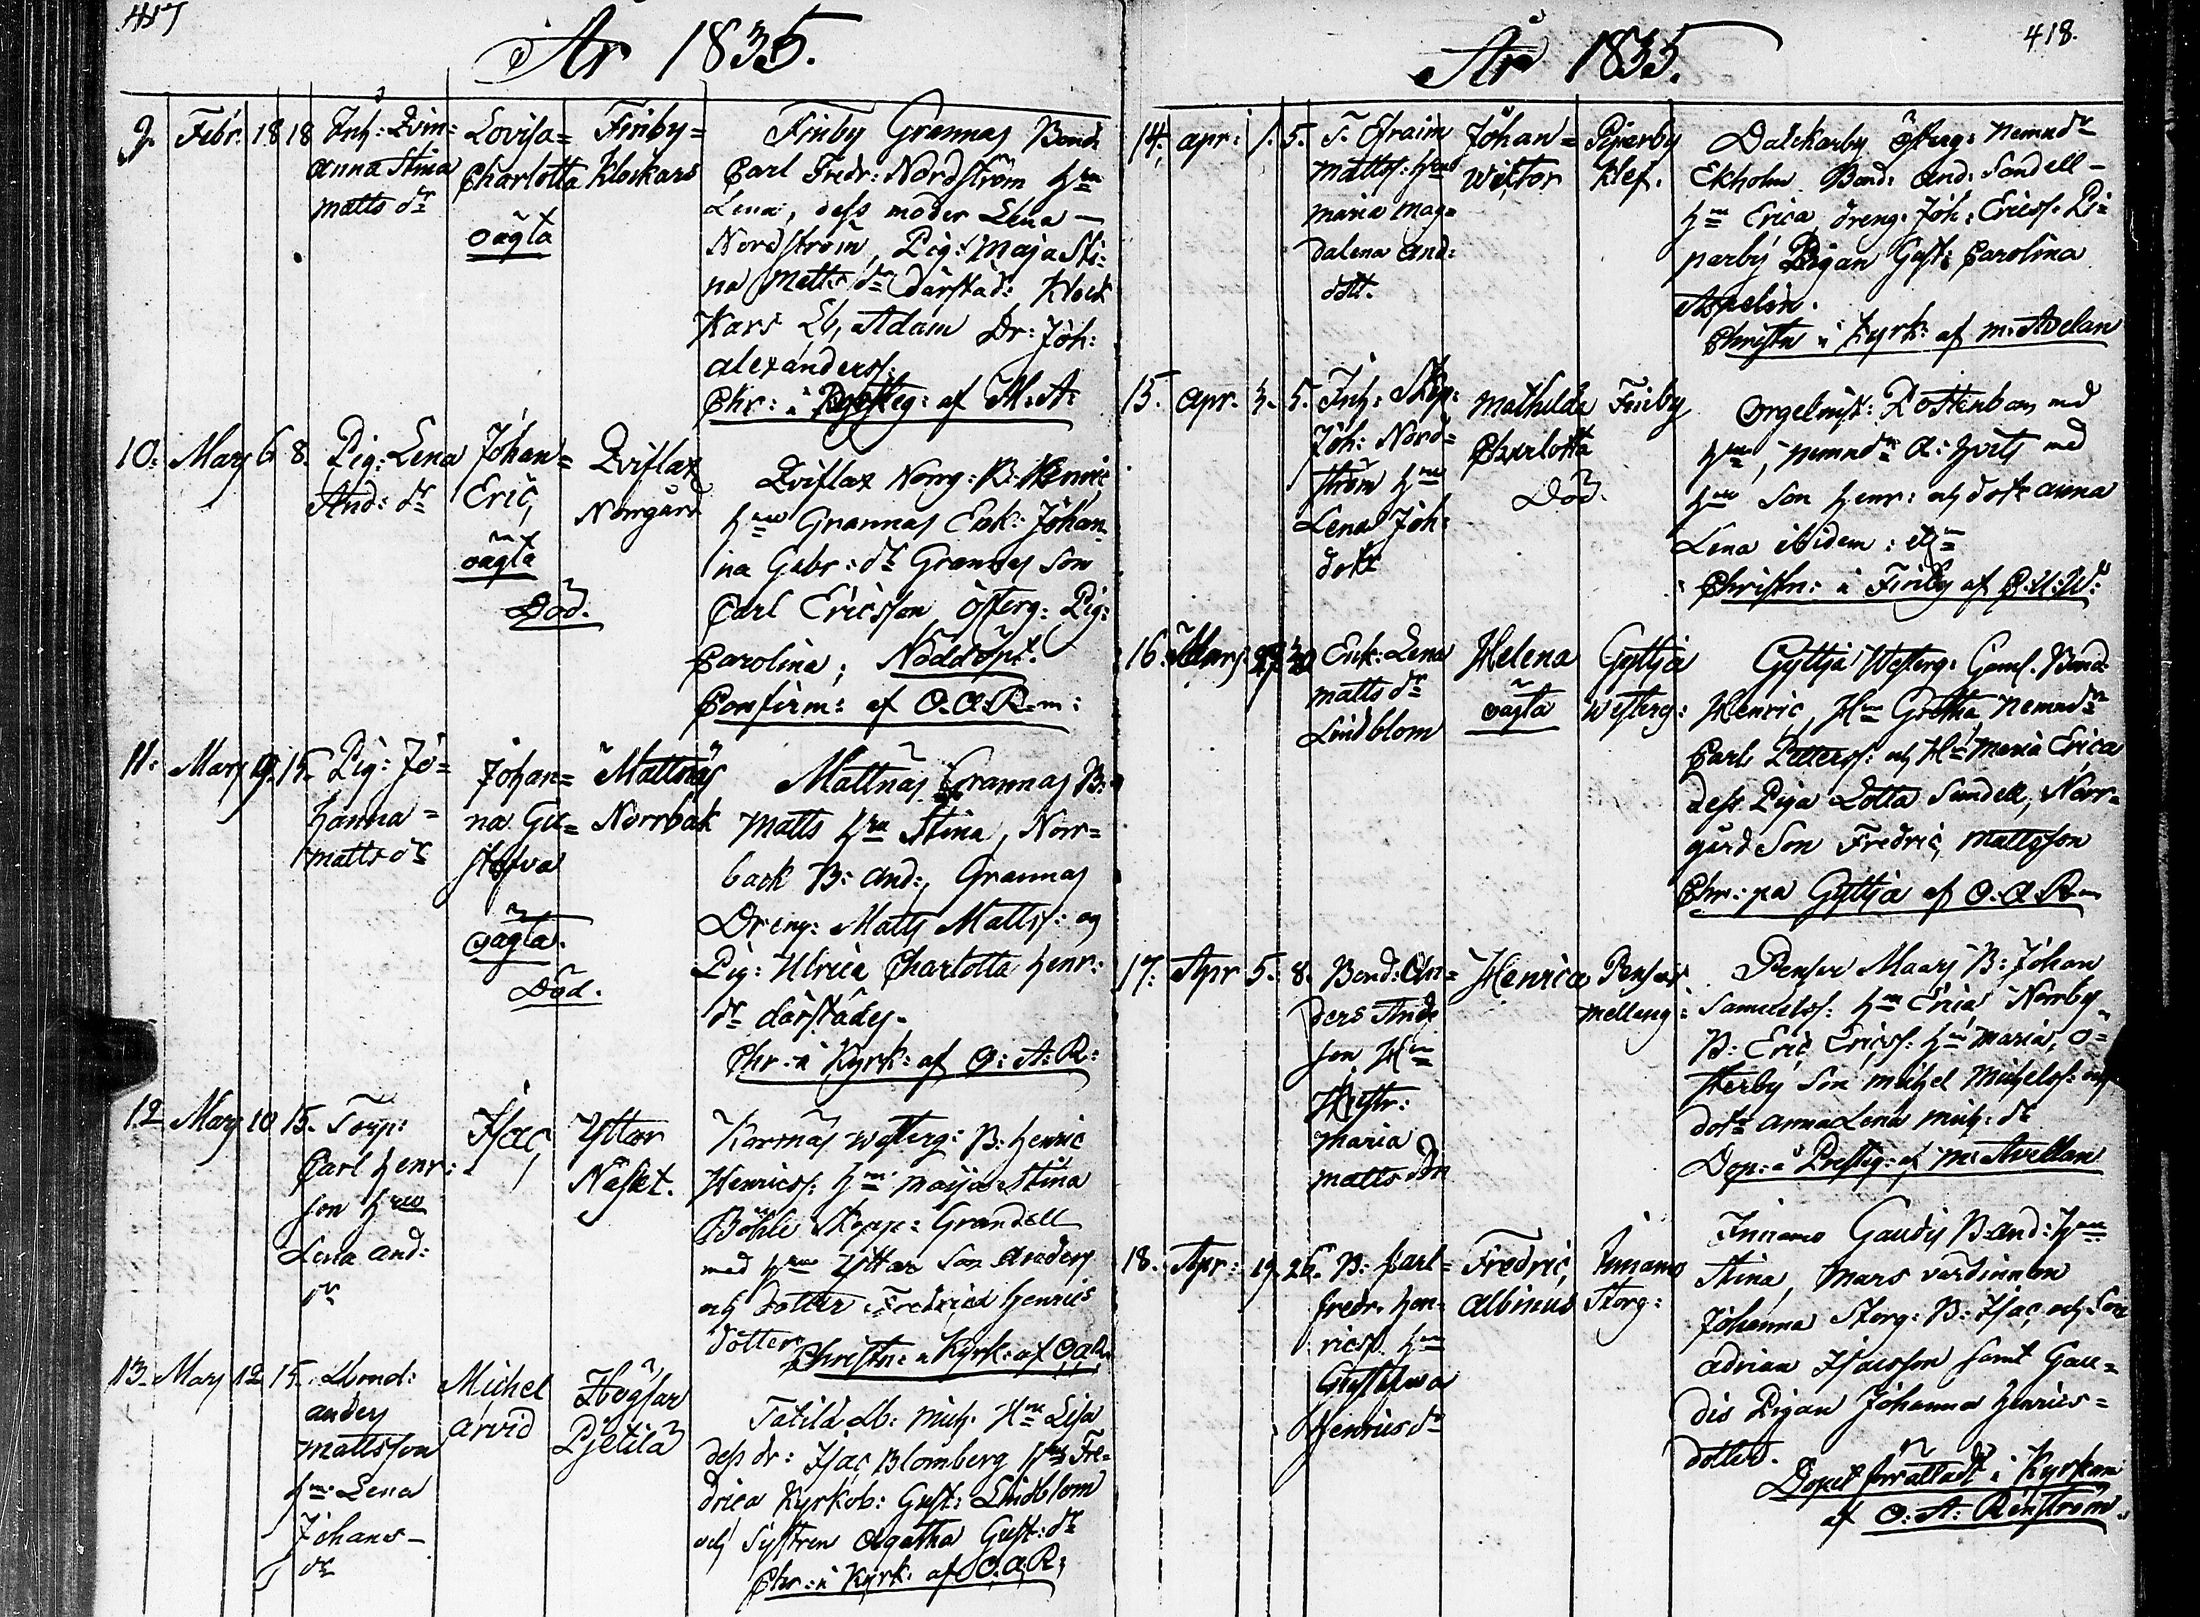 417
År 1835.
9. Febr. 18 18 Inh: Qvin=
Anna Stina
Matts dr
Lovisa=
Charlotta
oägta
Finby=
Klockars
Finby Grannas Bond.
Carl Fredr: Nordström hu
Lena, dess moder Lena —
Nordström, Pig: Maja Sti:
na Matts dr därstäd: Klock
kars Lb, Adam Dr: Joh:
Alexanderss:
Chr: i Prestg: af M: A:
10. Mars 6 8. Pig: Lena
And: dr
Johan=
Eric,
oägta
Död.
Qviflax
Norrgård
Qviflax Norrg: B: Henric
hu Grannas Enk: Johan
na Gabr: dr Grannas Son
Carl Ericsson Österg: Pig:
Carolina; Nöddöpt.
Confirm: af O. A. R-m:
11: Mars 9. 15. Pig: Jo=
hanna=
Matts dr
Johan=
na Gu=
stafva
oägta.
Död.
Mattnäs
Norrbak
Mattnäs Grannas B:
Matts hu Stina, Norr=
back B: And:, Grannas
Dreng: Matts Mattss: og
Pig: Ulrica Charlotta Henr:
dr därstädes.
Chr. i Kyrk: af O: A: R:
12 Mars 10 15. Torp:
Carl Henr:
son hu
Lena And:
dr
Isac,
Yttar
Näset.
Kornäs Westerg: B: Henric
Henricss: hu Maija Stina
Böhle Skepp: Grandell
med hu Yttar Son Anders
och dotter Fredrica Henrics
dotter
Christn: i Kyrk: af OAR.
13. Mars 12 15. Bond:
Anders
Mattsson
hu Lena
Johans—
dr
Michel
Arvid
Högsar
Pjetilä
Tatila Lb: Mich. Hu Lisa
dess dr: Isac Blomberg hu Fre=
drica Kyrkob: Gust: Lindblom
och Systren Agatha Gust: dr
Chr: i Kyrk: af O. A. R;
418.
År 1835.
14. Apr: 1. 5. T. Efraim
Mattss: hu
Maria Mag=
dalena And:
dott.
Johan=
Wiktor
Piparby
Klef.
Dalkarby Österg: Nemndm
Ekholm Bond: And: Sandell —
hu Erica dreng: Joh: Ericss. Pi=
parby Pigan Gust: Carolina
Aspelin.
Christn i Kyrk: af M: Avelan
15. Apr. 3. 5. Inh: Skep:
Joh: Nord=
ström hu
Lena Joh:
dotr
Mathilda
Charlotta
Död.
Finby
Orgelnist: Rottenborg med
hu, Nemndm A: Hvits med
hu Son Henr: och dotr Anna
Lena ibidem:
Christn: i Finby af C. U: W:
16. Mars 27 30 Enk: Lena
Matts dr
Lindblom
Helena
oägta
Gyttja
Westerg:
Gyttja Westerg: Gaml. Bond.
Henric, Hu Gretha, Nemndm
Carl Petterss: och Hu Maria Erica
dess Piga Lotta Sundell, Norr=
gård Son Fredric, Mattsson
Chr: på Gyttja af O. A. R-m
17. Apr 5. 8. Bond: An=
ders Ands
son Hu
Maria
Matts dr
Henrica
Pensar
Melleng:
Pensar Maars B: Johan
Samuelss: hu Erica Norrby
B: Eric Ericss: hu Maria, Ö=
sterby Son Michel Michelss: och
dotr Anna Lena Mich: dr
Dop: i Prestg: af M: Avellan
18. Apr: 19 26. B: Carl=
Fredr. Hen=
ricss. hu
Gustafwa
Henrics dr
Fredric,
Albinus
Innamo
Storg:
Innamo Gaudis B And: hu
Stina, Mars värdinnan
Johanna Storg: B: Isac, och Son
Adrian Isacsson samt Gau=
dis Pigan Johanna Henrics=
dotter.
Dopet förrättadt i Kyrkan
af O: A: Renström.